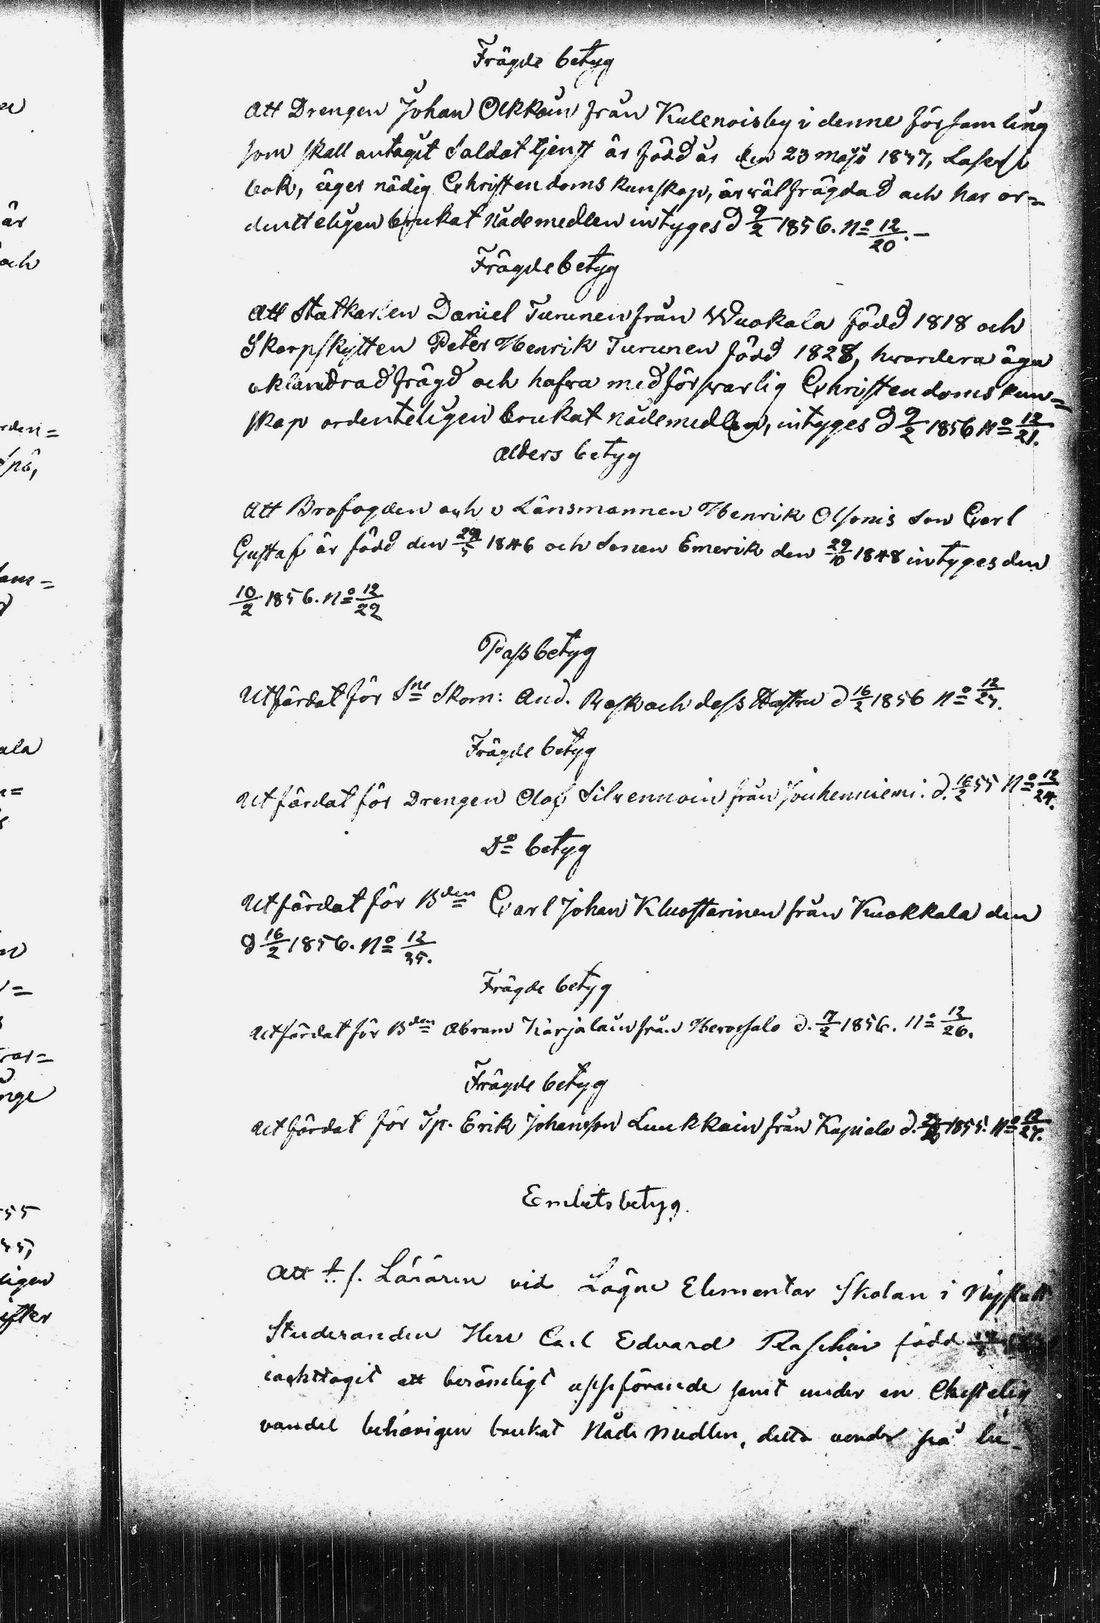 Frägde betyg
Att Drengen Johan Olkkoin från Kulenoisby i denne församling
som skall antagit Soldat tjenst är född år den 23 majo 1837, Läser i
bok, äger nödig Christendoms kunskap, är wälfrägdad och har or=
dentteligen brukat Nådemedlen intyges d 9/2 1856. No 12/20. –
Frägdebetyg
Att Statkarlen Daniel Turunen från Wuokala född 1818 och
Skarpskytten Peter Henrik Turunen född 1828, hwardera äga
oklandrad frägd och hafwa med förswarlig Christendoms kun=
skap ordenteligen brukat nådemedlen, intyges d 9/2 1856 No 12/21.
Alders betyg
Att Brofogden och v Länsmannen Henrik Olsonis Son Carl
Gustaf är född den 29/5 1846 och Sonen Emerik den 29/10 1848 intyges den
10/2 1856. No 12/22
Passbetyg
Utfärdat för Sne Skom: And. Rosk och dess Hustru d 16/2 1856 No 12/23.
Frägde betyg
Utfärdat för Drengen Olof Silvennoin från Jouhenniemi. d. 16/2 55 No 12/24.
Do betyg
Utfärdat för Bden Carl Johan Kluostarinen från Kuokkala den
d 16/2 1856. No 12/25.
Frägde betyg
Utfärdat för Bden Abram Karjalain från Herossalo d. 17/2 1856. No 12/26.
Frägde betyg
Utfärdat för Tp. Erik Johansson Luukkain från Kapiala d. 1855. No 12/27.
Embetsbetyg.
Att t. f. Läraren vid Lägre Elementar Skolan i Nystad
Studeranden Herr Carl Edvard född
iakttagit ett berömligt uppförande samt under en Christelig
vandel behörigen brukat Nåde Medlen, detta varder på be-
är
och
rden=
på,
ala
=
nge
55
ligen
ifter